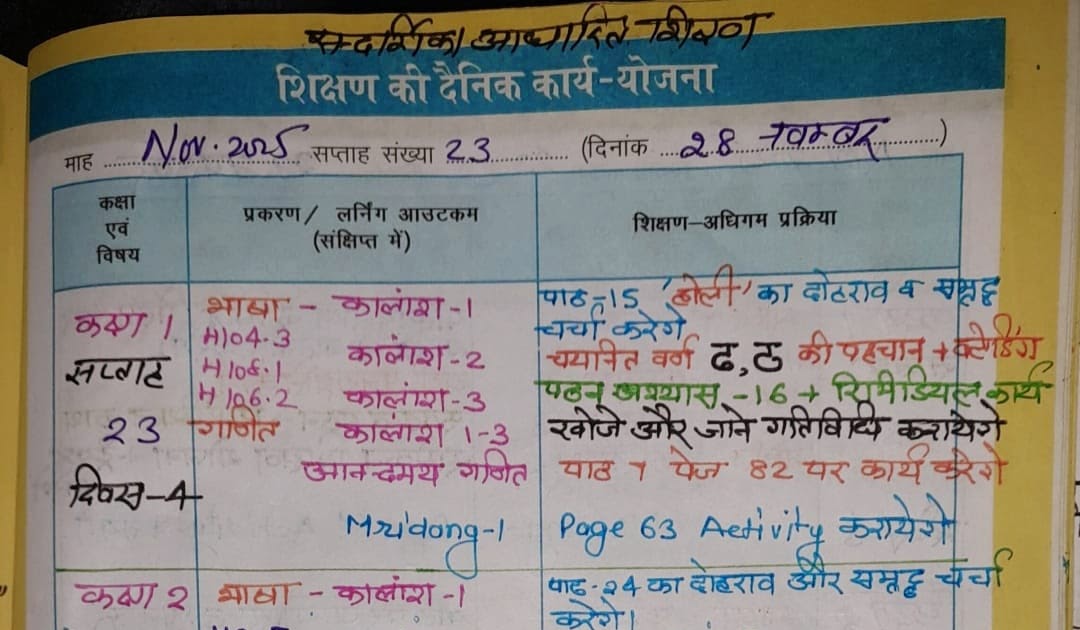 सन्दर्शिका आधारित शिक्षण
शिक्षण की दैनिक कार्य-योजना
माह Nov. 2025 सप्ताह संख्या 23 (दिनांक 28 नवम्बर)
कक्षा एवं विषय
प्रकरण/ लर्निंग आउटकम
(संक्षिप्त में)
शिक्षण-अधिगम प्रक्रिया
कक्षा 1
सप्ताह
23
दिवस-4
भाषा - कालांश-1
H104.3
H106.1 कालांश-2
H106.2 कालांश-3
गणित कालांश 1-3
आनन्दमय गणित
Mridang-1
पाठ-15 'होली' का दोहराव व समृद्ध
चर्चा करेगे
चयनित वर्ण ढ, ठ की पहचान + ब्लेंडिंग
पठन अभ्यास -16 + रिमीडियल कार्य
खोजे और जाने गतिविधि करायेगे
पाठ 7 पेज 82 पर कार्य करेगे
Page 63 Activity करायेगे
कक्षा 2
भाषा - कालांश-1
पाठ-24 का दोहराव और समृद्ध चर्चा
करेगे।